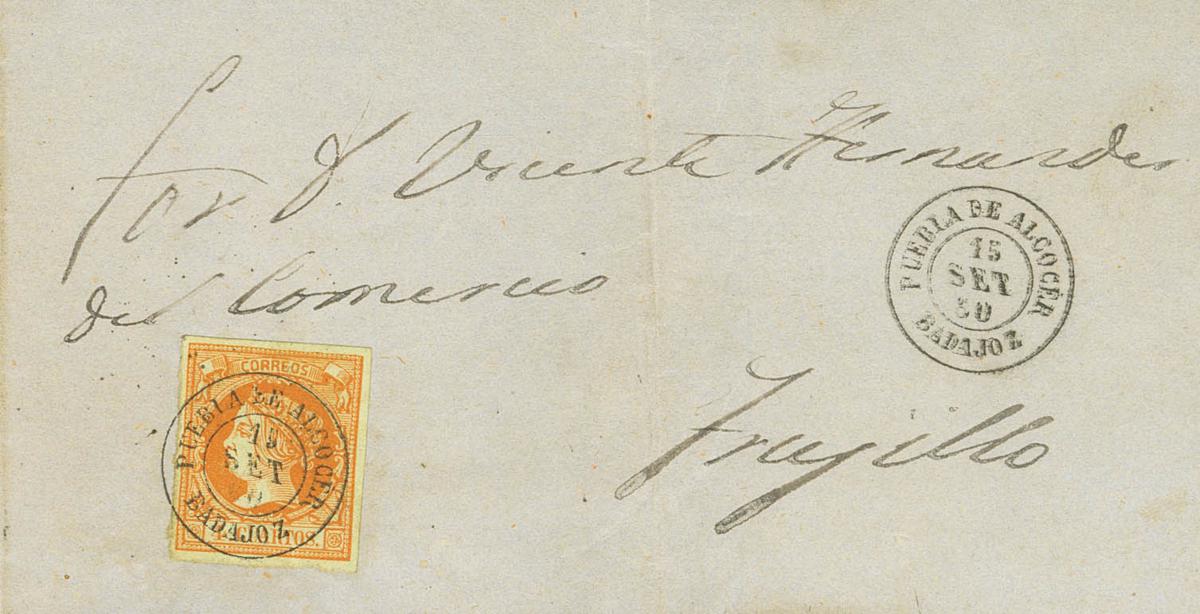 Sor D. Vicente Hernandez
del Comercio
Trugillo
PUEBLA DE ALCOCER
15
SET
60
BADAJOZ
CORREOS
PUEBLA DE ALCOCER
15
SET
BADAJOZ
4 CUARTOS.